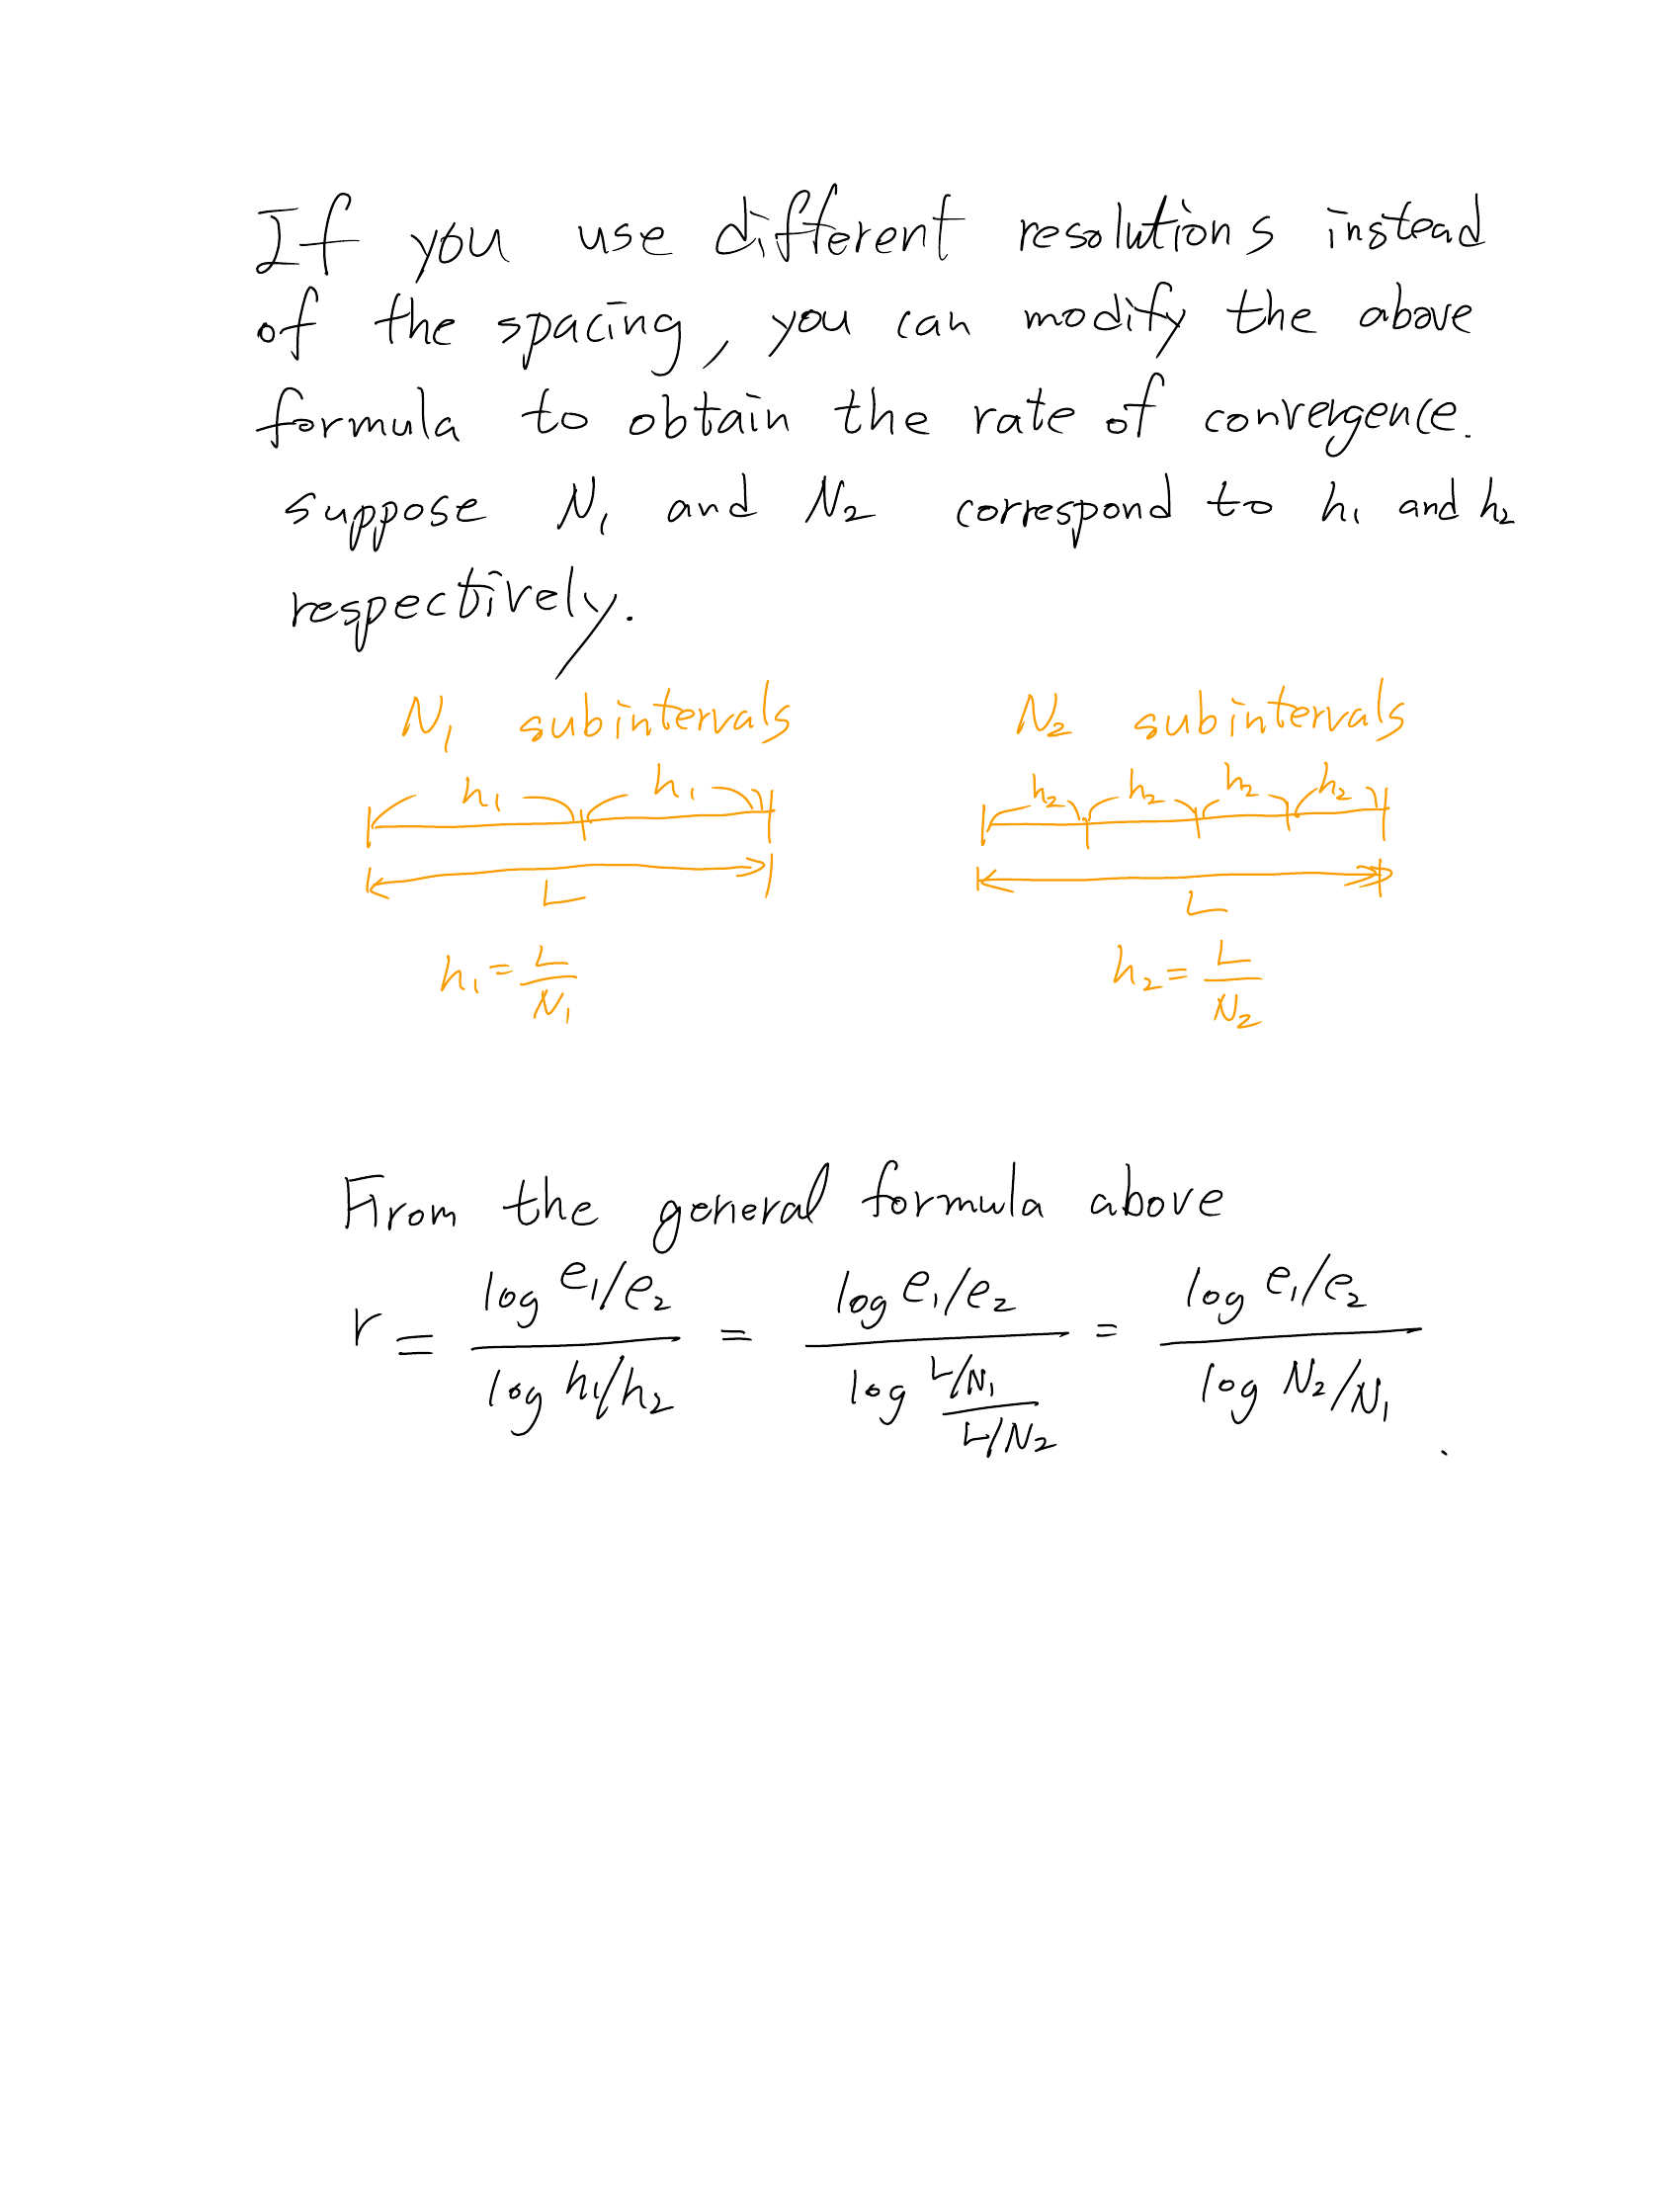 If you use different resolutions instead
of the spacing, you can modify the above
formula to obtain the rate of convergence.
suppose N₁ and N₂ correspond to h₁ and h₂
respectively.
N₁ subintervals N₂ subintervals
h₁ h₁ h₂ h₂ h₂ h₂
L L
h₁ = L/N₁ h₂ = L/N₂
From the general formula above
r = (log e₁/e₂)/(log h₁/h₂) = (log e₁/e₂)/(log (L/N₁)/(L/N₂)) = (log e₁/e₂)/(log N₂/N₁) .